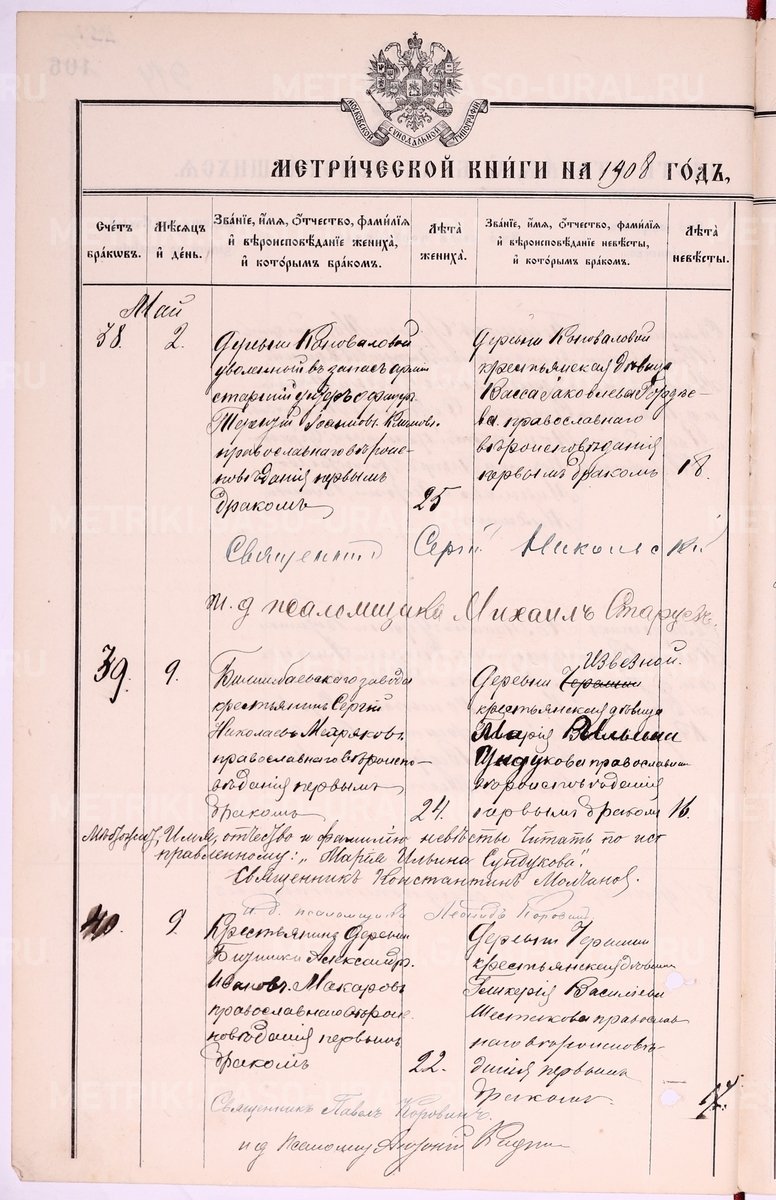 МОСКОВСКОЙ СѴНОДАЛЬНОЙ ТИПОГРАФІИ
МЕТРИ́ЧЕСКОЙ КНИ́ГИ НА 1908 ГО́ДЪ,
Сче́тъ бра́кѡвъ.
Мѣ́сяцъ и҆ де́нь.
Зва́нїе, и҆́мя, ѻ҆́тчество, фами́лїя и҆ вѣроисповѣ́данїе жениха̀, и҆ кото́рымъ бра́комъ.
Лѣ́та жениха̀.
Зва́нїе, и҆́мя, ѻ҆́тчество, фами́лїя и҆ вѣроисповѣ́данїе невѣ́сты, и҆ кото́рымъ бра́комъ.
Лѣ́та невѣ́сты.
Май
38.
2.
Деревни Коноваловой
уволенный въ запасъ арміи
старшій унтеръ офицеръ
православнаго вѣроис-
повѣданія первымъ
бракомъ
25
Деревни Коноваловой
крестьянская дѣвица
Васса Яковлева
православнаго
вѣроисповѣданія
первымъ бракомъ
18.
Священникъ Сергій Никольскій
и. д. псаломщика Михаилъ Старцевъ.
39.
9.
Билимбаевскаго завода
крестьянинъ Сергій
Николаевъ Мехряковъ
православнаго вѣроиспо-
вѣданія первымъ
бракомъ
24.
Извезной.
Деревни Черемши
крестьянская дѣвица
Марія Ильина
Сундукова православнаго
вѣроисповѣданія
первымъ бракомъ
16.
Имя, отчество и фамилію невѣсты читать по исправленному: „Марія Ильина Сундукова".
Священникъ Константинъ Молчановъ.
и. д. псаломщика Леонидъ
40.
9.
Крестьянинъ деревни
Битимки Александръ
Ивановъ Макаровъ
православнаго вѣроис-
повѣданія первымъ
бракомъ
22.
Деревни Черемши
крестьянская дѣвица
Гликерія Васильева
Шестакова православ-
наго вѣроисповѣ-
данія первымъ
бракомъ.
17.
Священникъ Павелъ Коровинъ.
и д псаломщ
METRIKI.GASO-URAL.RU